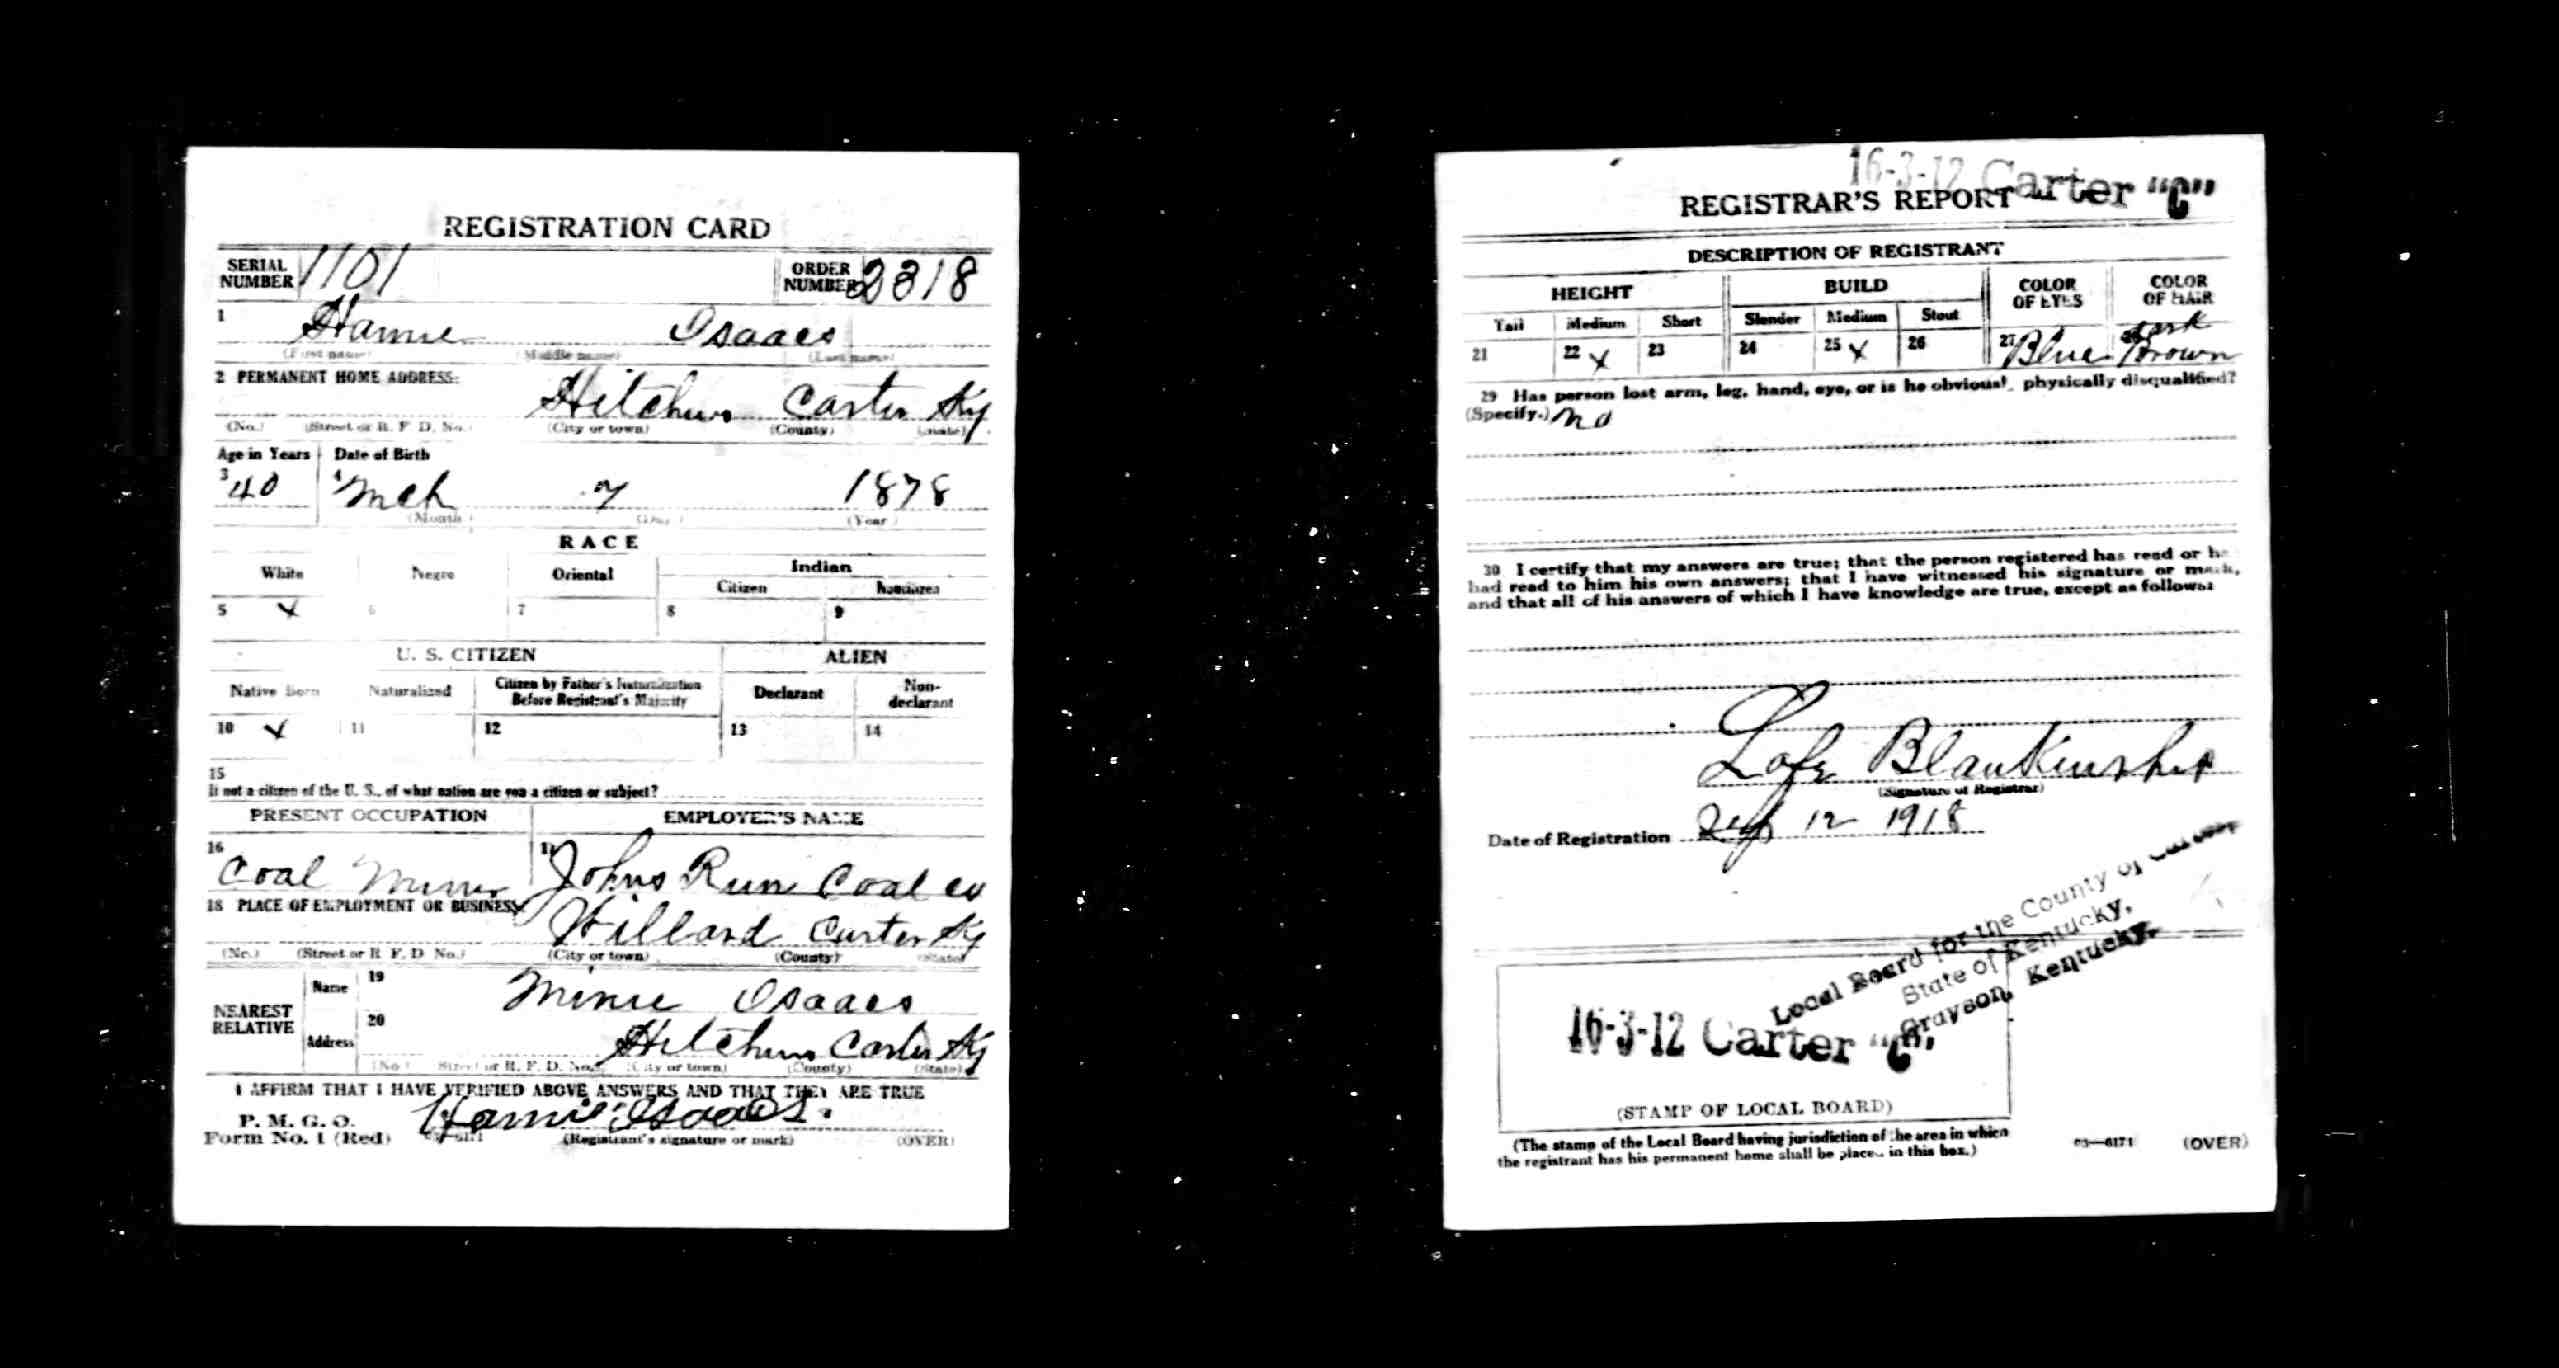 REGISTRATION CARD
SERIAL NUMBER 1101 ORDER NUMBER 2318
1 Hamie Isaacs
(First name) (Middle name) (Last name)
2 PERMANENT HOME ADDRESS:
Hitchins Carter Ky
(No.) (Street or R. F. D. No.) (City or town) (County) (State)
Age in Years Date of Birth
3 40 4 Mch 7 1878
(Month) (Day) (Year)
RACE
White Negro Oriental Indian
Citizen Noncitizen
5 X 6 7 8 9
U. S. CITIZEN ALIEN
Native Born Naturalized Citizen by Father's Naturalization Before Registrant's Majority Declarant Non-declarant
10 X 11 12 13 14
15
If not a citizen of the U. S., of what nation are you a citizen or subject?
PRESENT OCCUPATION EMPLOYER'S NAME
16 Coal Miner 17 Johns Run Coal co
18 PLACE OF EMPLOYMENT OR BUSINESS:
Willard Carter Ky
(No.) (Street or R. F. D. No.) (City or town) (County) (State)
NEAREST RELATIVE Name 19 Minie Isaacs
Address 20 Hitchins Carter Ky
(No.) (Street or R. F. D. No.) (City or town) (County) (State)
I AFFIRM THAT I HAVE VERIFIED ABOVE ANSWERS AND THAT THEY ARE TRUE
P. M. G. O.
Form No. 1 (Red) 03—6171 Hamie Isaacs (Registrant's signature or mark) (OVER)
16-3-12 Carter "C"
REGISTRAR'S REPORT
DESCRIPTION OF REGISTRANT
HEIGHT BUILD COLOR OF EYES COLOR OF HAIR
Tall Medium Short Slender Medium Stout
21 22 X 23 24 25 X 26 27 Blue Dark Brown
29 Has person lost arm, leg, hand, eye, or is he obviously physically disqualified?
(Specify.) No
30 I certify that my answers are true; that the person registered has read or has
had read to him his own answers; that I have witnessed his signature or mark,
and that all of his answers of which I have knowledge are true, except as follows:
Lafe Blankenship
(Signature of Registrar)
Date of Registration Sep 12 1918
Local Board for the County of Carter
State of Kentucky,
Grayson, Kentucky.
16-3-12 Carter "C"
(STAMP OF LOCAL BOARD)
(The stamp of the Local Board having jurisdiction of the area in which
the registrant has his permanent home shall be placed in this box.)
03—6171 (OVER)